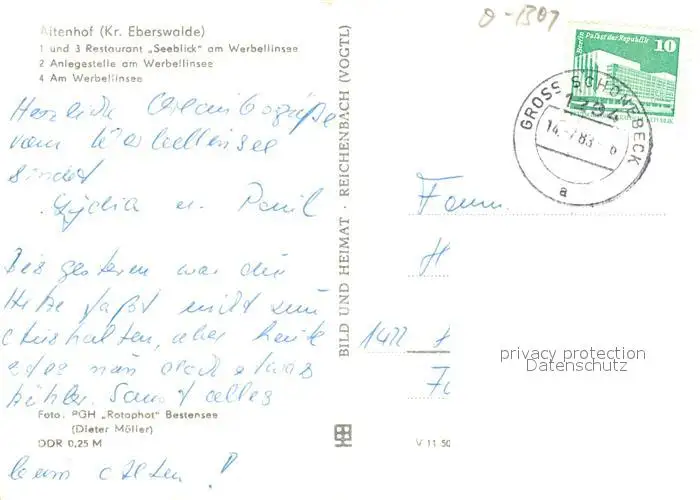 O-1307
Altenhof (Kr. Eberswalde)
1 und 3 Restaurant „Seeblick" am Werbellinsee
2 Anlegestelle am Werbellinsee
4 Am Werbellinsee
Herzliche Urlaubsgrüße
vom Werbellinsee
sendet
Lydia u. Paul
Bis gestern war die
Hitze fast nicht zum
Aushalten, aber heute
ist es nun doch etwas
kühler. Sonst alles
Foto: PGH „Rotophot" Bestensee
(Dieter Möller)
DDR 0,25 M
beim Alten!
BILD UND HEIMAT · REICHENBACH (VOGTL)
V 11 50
Berlin, Palast der Republik
10
GROSS SCHÖNEBECK
1294
83
a
Fam.
H
1422 H
privacy protection
Datenschutz